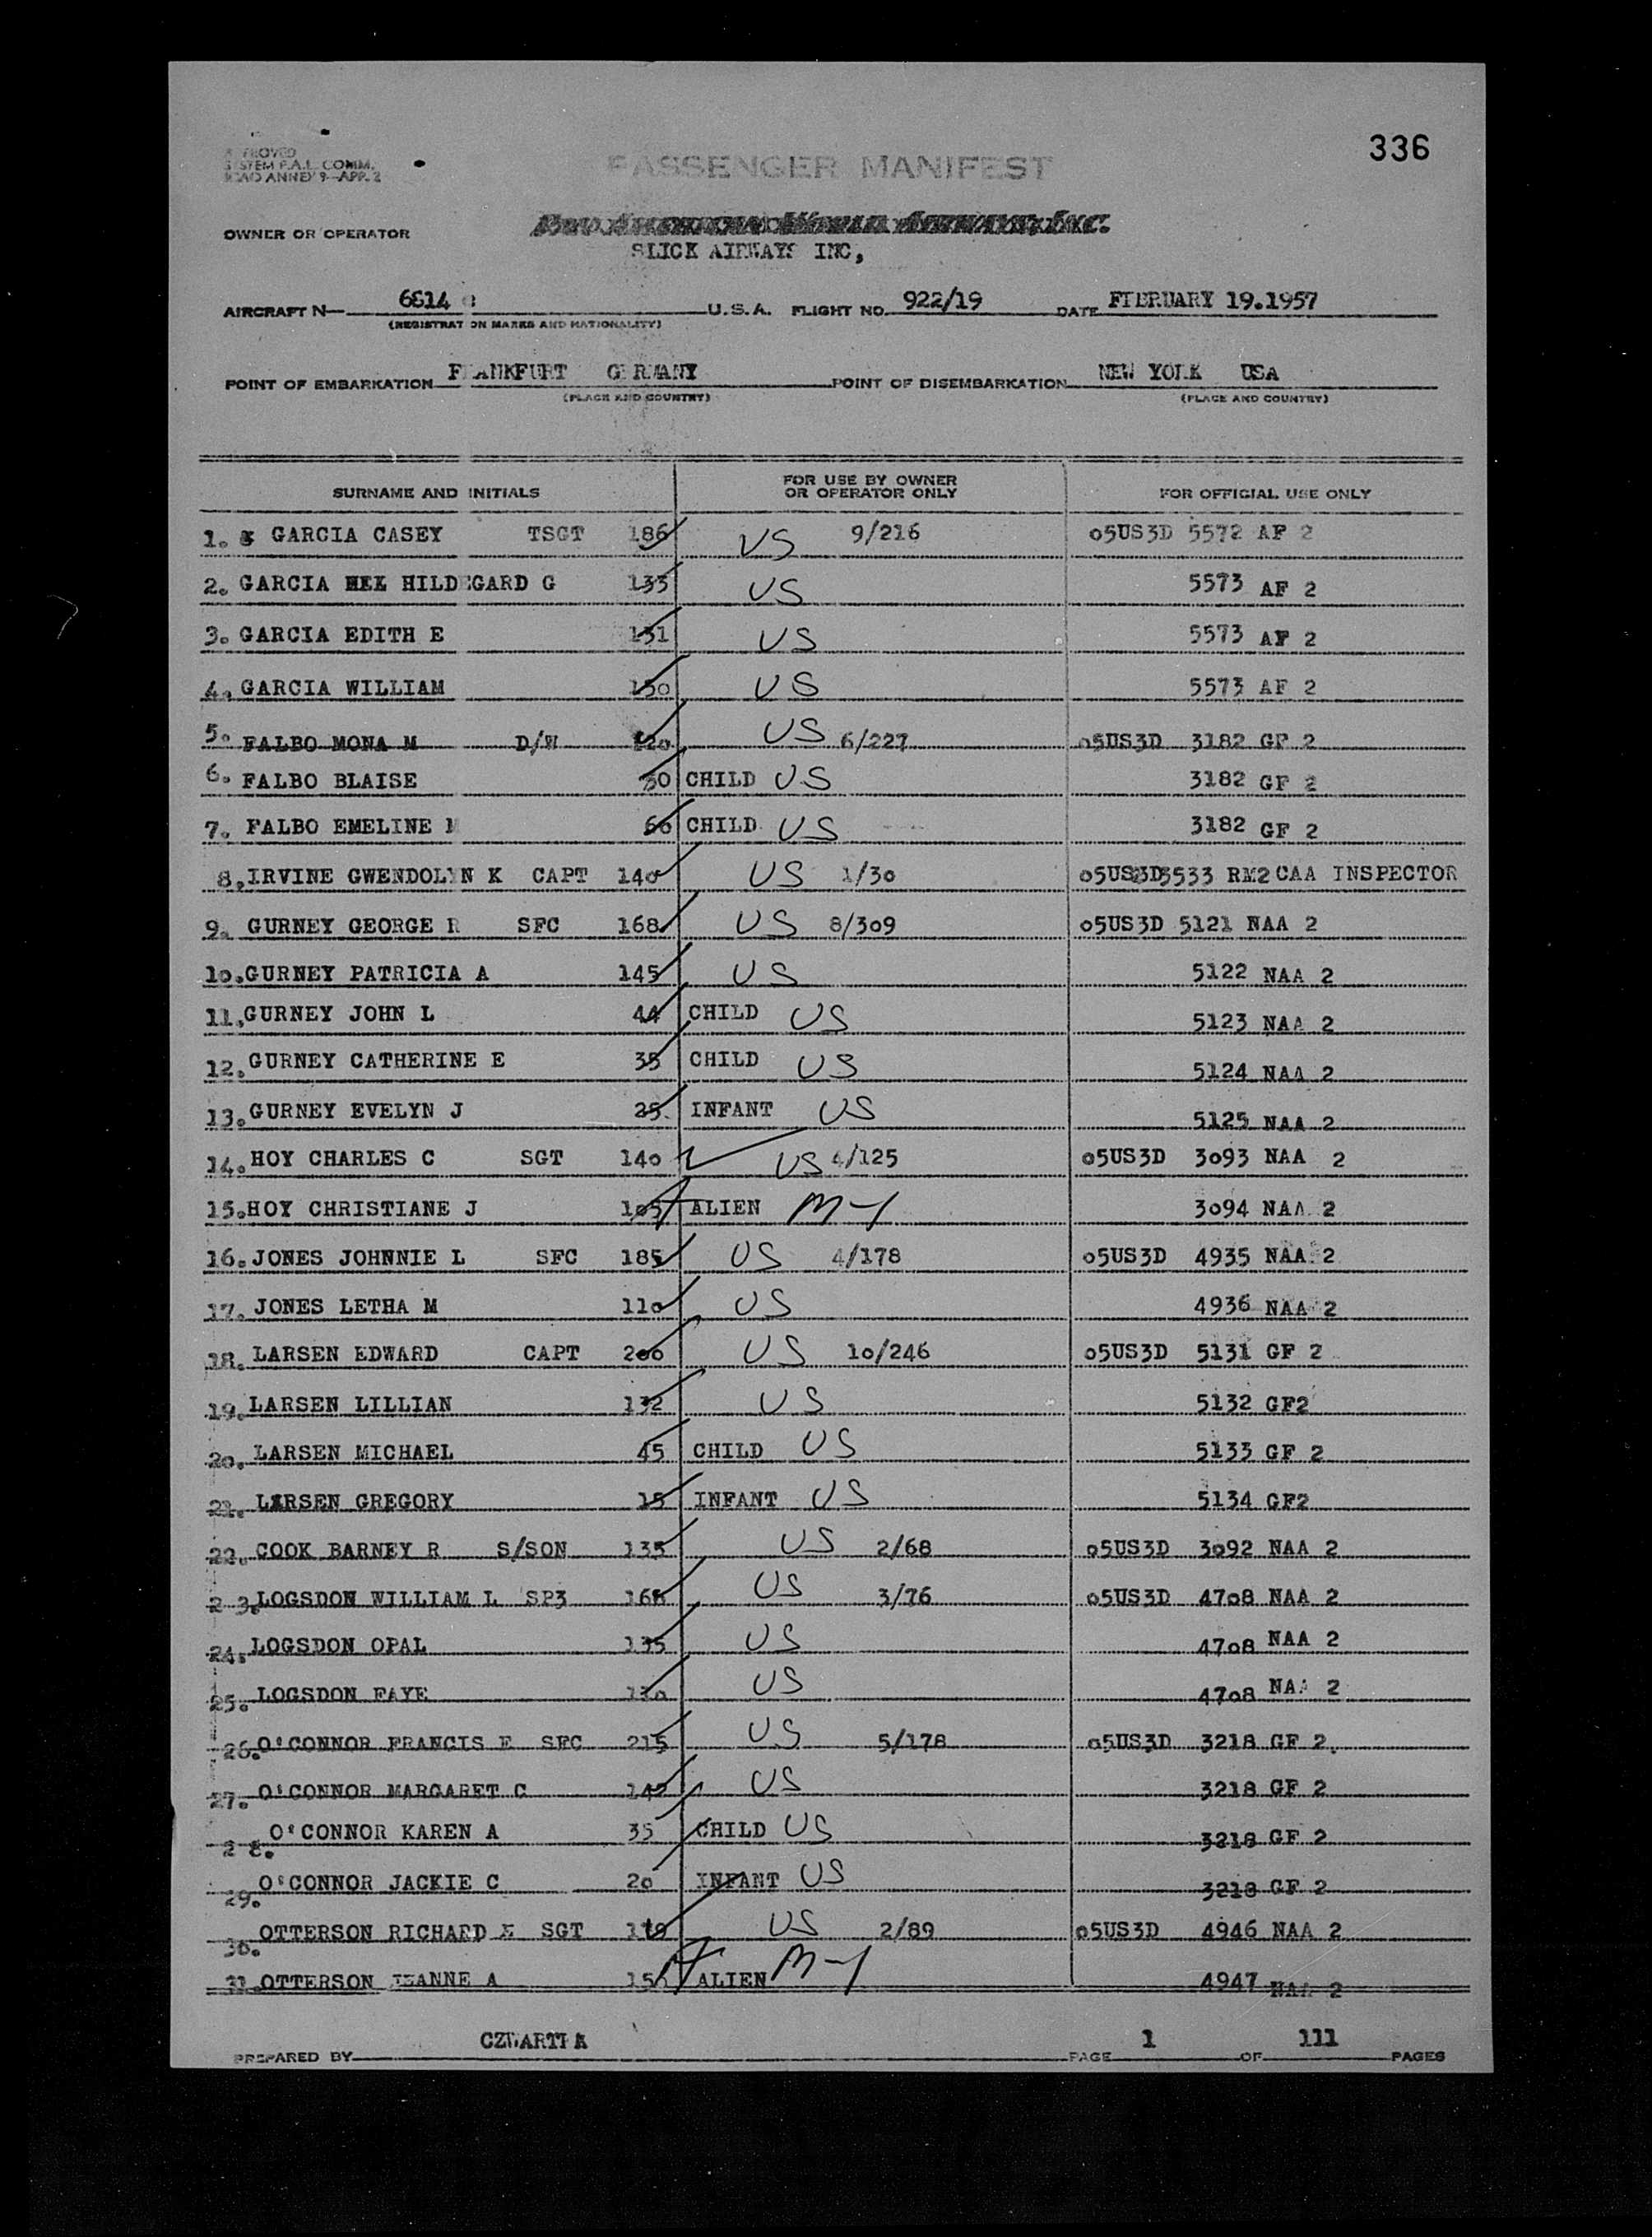 336
APPROVED
SYSTEM F.A.L. COMM.
ICAO ANNEX 9-APP. 2
PASSENGER MANIFEST
OWNER OR OPERATOR
SLICK AIRWAYS INC,
AIRCRAFT N— 6814 U.S.A. FLIGHT NO. 922/19 DATE FIERUARY 19.1957
(REGISTRATION MARKS AND NATIONALITY)
POINT OF EMBARKATION FRANKFURT GERMANY POINT OF DISEMBARKATION NEW YORK USA
(PLACE AND COUNTRY) (PLACE AND COUNTRY)
SURNAME AND INITIALS FOR USE BY OWNER OR OPERATOR ONLY FOR OFFICIAL USE ONLY
1. GARCIA CASEY TSGT 186 US 9/216 05US3D 5572 AF 2
2. GARCIA HILDEGARD G 133 US 5573 AF 2
3. GARCIA EDITH E 131 US 5573 AF 2
4. GARCIA WILLIAM 150 US 5573 AF 2
5. FALBO MONA M D/W 120 US 6/227 05US3D 3182 GF 2
6. FALBO BLAISE 30 CHILD US 3182 GF 2
7. FALBO EMELINE M 60 CHILD US 3182 GF 2
8. IRVINE GWENDOLYN K CAPT 140 US 1/30 05US3D 3533 RM2 CAA INSPECTOR
9. GURNEY GEORGE R SFC 168 US 8/309 05US3D 5121 NAA 2
10. GURNEY PATRICIA A 145 US 5122 NAA 2
11. GURNEY JOHN L 44 CHILD US 5123 NAA 2
12. GURNEY CATHERINE E 35 CHILD US 5124 NAA 2
13. GURNEY EVELYN J 25 INFANT US 5125 NAA 2
14. HOY CHARLES C SGT 140 US 4/125 05US3D 3093 NAA 2
15. HOY CHRISTIANE J 105 ALIEN M-1 3094 NAA 2
16. JONES JOHNNIE L SFC 185 US 4/178 05US3D 4935 NAA 2
17. JONES LETHA M 110 US 4936 NAA 2
18. LARSEN EDWARD CAPT 200 US 10/246 05US3D 5131 GF 2
19. LARSEN LILLIAN 132 US 5132 GF2
20. LARSEN MICHAEL 45 CHILD US 5133 GF 2
21. LARSEN GREGORY 15 INFANT US 5134 GF2
22. COOK BARNEY R S/SON 135 US 2/68 05US3D 3092 NAA 2
23. LOGSDON WILLIAM L SP3 168 US 3/76 05US3D 4708 NAA 2
24. LOGSDON OPAL 135 US 4708 NAA 2
25. LOGSDON FAYE 130 US 4708 NAA 2
26. O'CONNOR FRANCIS E SFC 215 US 5/178 05US3D 3218 GF 2
27. O'CONNOR MARGARET C 142 US 3218 GF 2
28. O'CONNOR KAREN A 35 CHILD US 3218 GF 2
29. O'CONNOR JACKIE C 20 INFANT US 3218 GF 2
30. OTTERSON RICHARD E SGT US 2/89 05US3D 4946 NAA 2
31 OTTERSON JEANNE A ALIEN M-1 4947 NAA 2
PREPARED BY PAGE 1 OF 111 PAGES